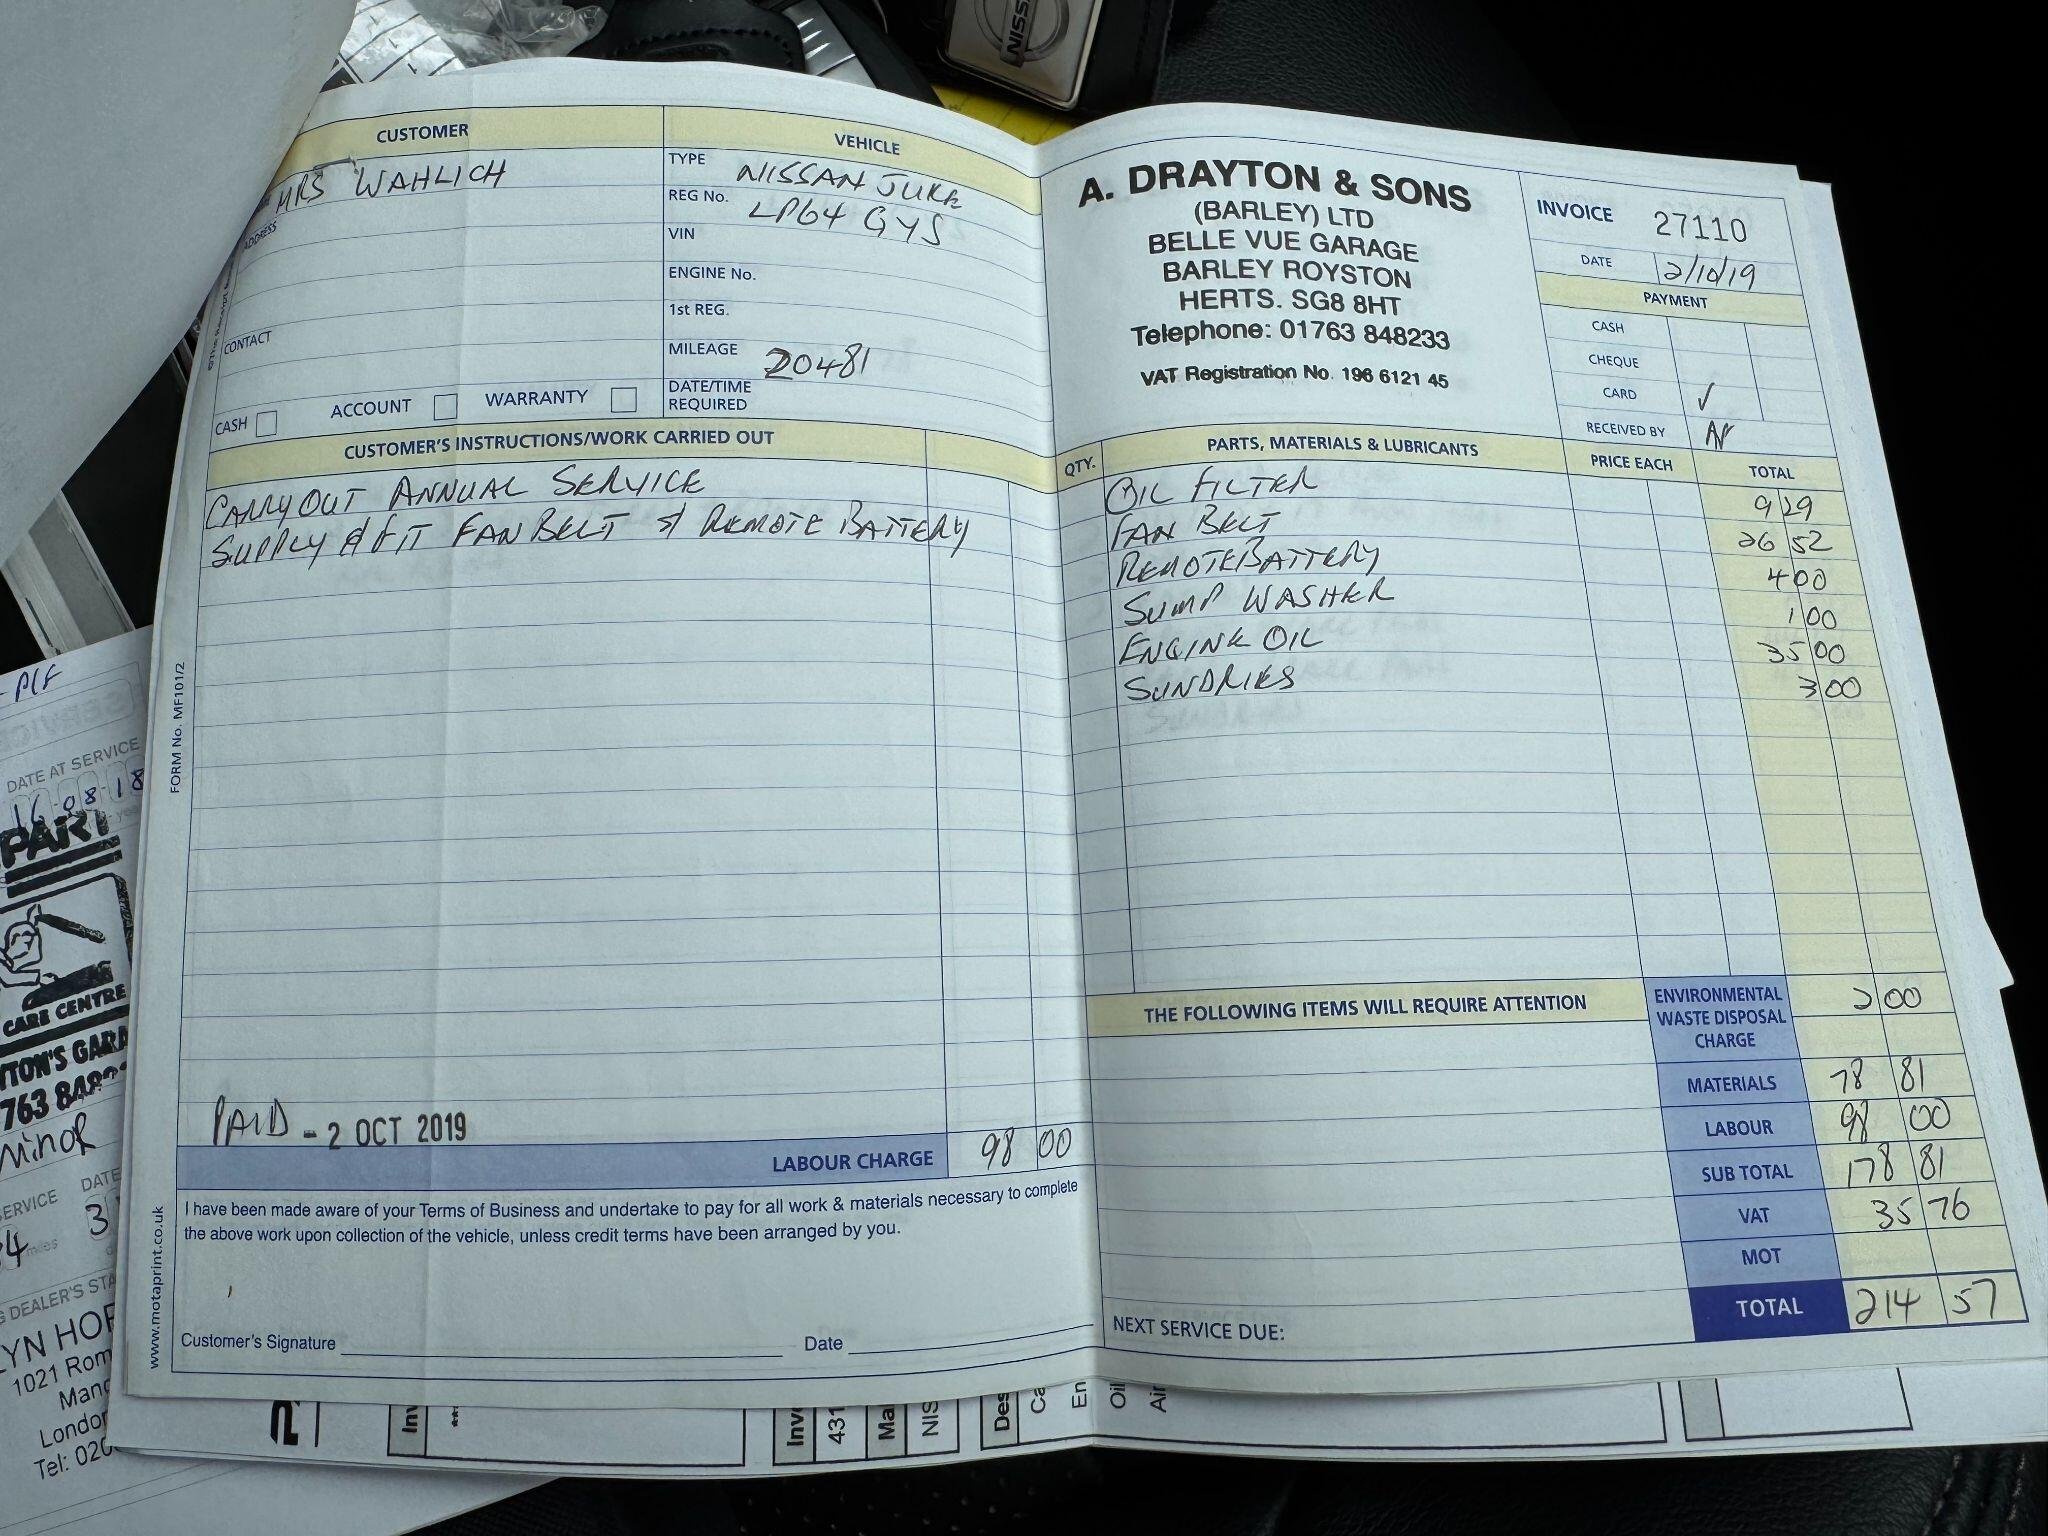 CUSTOMER
MRS WAHLICH
ADDRESS
CONTACT
CASH ACCOUNT WARRANTY
VEHICLE
TYPE NISSAN JUKE
REG No. LP64 GYS
VIN
ENGINE No.
1st REG.
MILEAGE 20481
DATE/TIME
REQUIRED
CUSTOMER'S INSTRUCTIONS/WORK CARRIED OUT
CARRY OUT ANNUAL SERVICE
SUPPLY & FIT FAN BELT & REMOTE BATTERY
PAID - 2 OCT 2019
LABOUR CHARGE 98 00
I have been made aware of your Terms of Business and undertake to pay for all work & materials necessary to complete
the above work upon collection of the vehicle, unless credit terms have been arranged by you.
Customer's Signature Date
FORM No. MF101/2
www.motaprint.co.uk
A. DRAYTON & SONS
(BARLEY) LTD
BELLE VUE GARAGE
BARLEY ROYSTON
HERTS. SG8 8HT
Telephone: 01763 848233
VAT Registration No. 196 6121 45
INVOICE 27110
DATE 2/10/19
PAYMENT
CASH
CHEQUE
CARD ✓
RECEIVED BY
QTY. PARTS, MATERIALS & LUBRICANTS PRICE EACH TOTAL
OIL FILTER 9 29
FAN BELT 26 52
REMOTE BATTERY 4 00
SUMP WASHER 1 00
ENGINE OIL 35 00
SUNDRIES 3 00
THE FOLLOWING ITEMS WILL REQUIRE ATTENTION
NEXT SERVICE DUE:
ENVIRONMENTAL
WASTE DISPOSAL
CHARGE 2 00
MATERIALS 78 81
LABOUR 98 00
SUB TOTAL 178 81
VAT 35 76
MOT
TOTAL 214 57
NISS
DATE AT SERVICE
16-08-18
PART
CARE CENTRE
TON'S GARA
763 848
Minor
SERVICE DATE
DEALER'S STA
LYN HOP
1021 Rom
Londo
Tel: 020
Inv
Inv
431
Ma
NIS
Des
Ca
En
Oil
Air